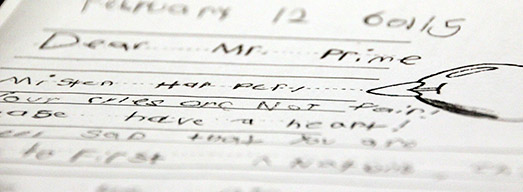 February 12 2015
Dear Mr. Prime
Minister Harper,
Your rules are Not fair!
have a heart!
sad that you are
to First